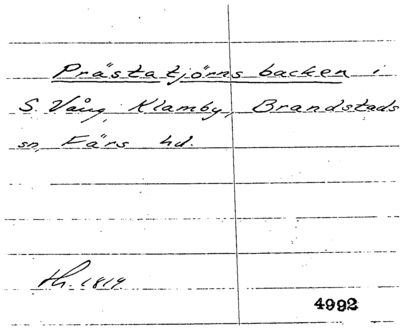 Prästatjörns backen i
S. Vång, Klamby, Brandstads
sn, Färs hd.
th. 1819
4992